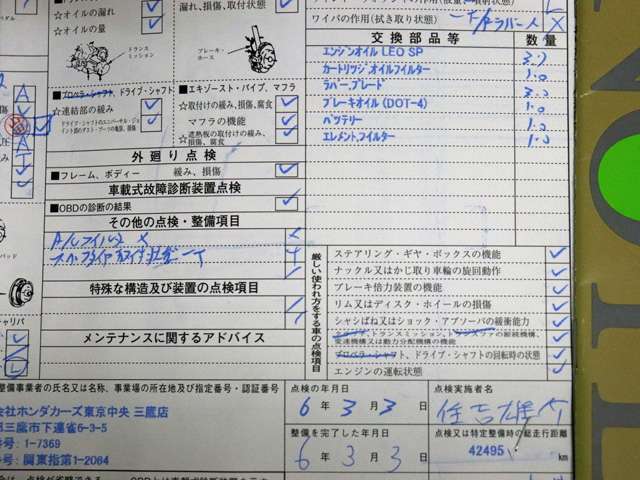 ☆オイルの漏れ
☆オイルの量
トランス
ミッション
漏れ、損傷、取付状態
ブレーキ・
ホース
ワイパの作用(拭き取り状態)
交換部品等
数量
エンジンオイル LEO SP
3.7
カートリッジオイルフィルター
1.0
ラバー,ブレード
3.0
ブレーキオイル(DOT-4)
1.0
バッテリー
1.0
エレメント,フィルター
1.0
■プロペラ・シャフト、ドライブ・シャフト
☆連結部の緩み
ドライブ・シャフトのユニバーサル・ジョ
イント部のダスト・ブーツの亀裂、損傷
■エキゾースト・パイプ、マフラ
☆取付けの緩み、損傷、腐食
マフラの機能
☆遮熱板の取付けの緩み、
損傷、腐食
外廻り点検
■フレーム、ボディー 緩み、損傷
車載式故障診断装置点検
■OBDの診断の結果
その他の点検・整備項目
特殊な構造及び装置の点検項目
メンテナンスに関するアドバイス
厳しい使われ方をする車の点検項目
ステアリング・ギヤ・ボックスの機能
ナックル又はかじ取り車輪の旋回動作
ブレーキ倍力装置の機能
リム又はディスク・ホイールの損傷
シャシばね又はショック・アブソーバの緩衝能力
変速機構又は動力分配機構の機能
プロペラ・シャフト、ドライブ・シャフトの回転時の状態
エンジンの運転状態
整備事業者の氏名又は名称、事業場の所在地及び指定番号・認証番号
会社ホンダカーズ東京中央 三鷹店
三鷹市下連雀6-3-5
番号: 1-7369
号: 関東指第1-2064
点検の年月日
6年3月3日
整備を完了した年月日
6年3月3日
点検実施者名
点検又は特定整備時の総走行距離
42495
km